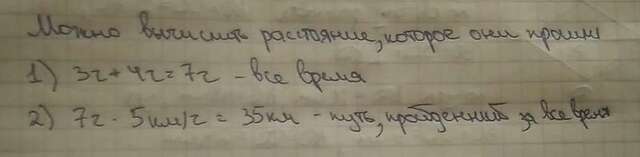 Можно вычислить расстояние, которое они прошли
1) 3ч+4ч=7ч - все время
2) 7ч · 5км/ч = 35км - путь, пройденный за все время